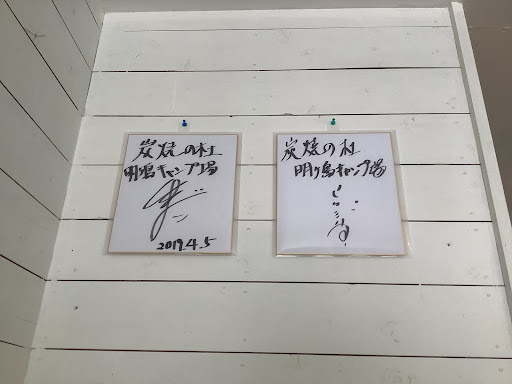 炭焼の村
明ヶ島キャンプ場
2019.4.5
炭焼の村
明ヶ島キャンプ場